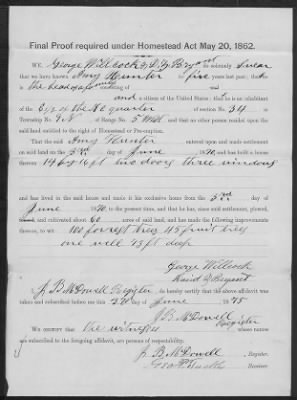 Final Proof required under Homestead Act May 20, 1862.
WE, George Willcock & D. Y. Bryant do solemnly swear
that we have known Amy Hunter for five years last past; that
is the head of a family consisting of
and a citizen of the United States; that is an inhabitant
of the E ½ of the NE quarter of section No. 34 in
Township No. 9 N of Range No. 5 West and that no other person resided upon the
said land entitled to the right of Homestead or Pre-emption.
That the said Amy Hunter entered upon and made settlement
on said land on the 3rd day of June 1870 and has built a house
thereon 14 by 16 ft two doors three windows
and has lived in the said house and made it his exclusive home from the 3rd day of
June 1870 to the present time, and that he has, since said settlement, plowed,
and cultivated about 60 acres of said land, and has made the following improvements
thereon, to wit: 100 forrest trees 45 fruit trees
one well 43 ft deep
George Willcock
David Y. Bryant
I, J B McDowell Register, do hereby certify that the above affidavit was
taken and subscribed before me this 3rd day of June 1875
J B McDowell
Register
WE CERTIFY that the witnesses whose names
are subscribed to the foregoing affidavit, are persons of respectability.
J. B McDowell, Register.
Receiver.